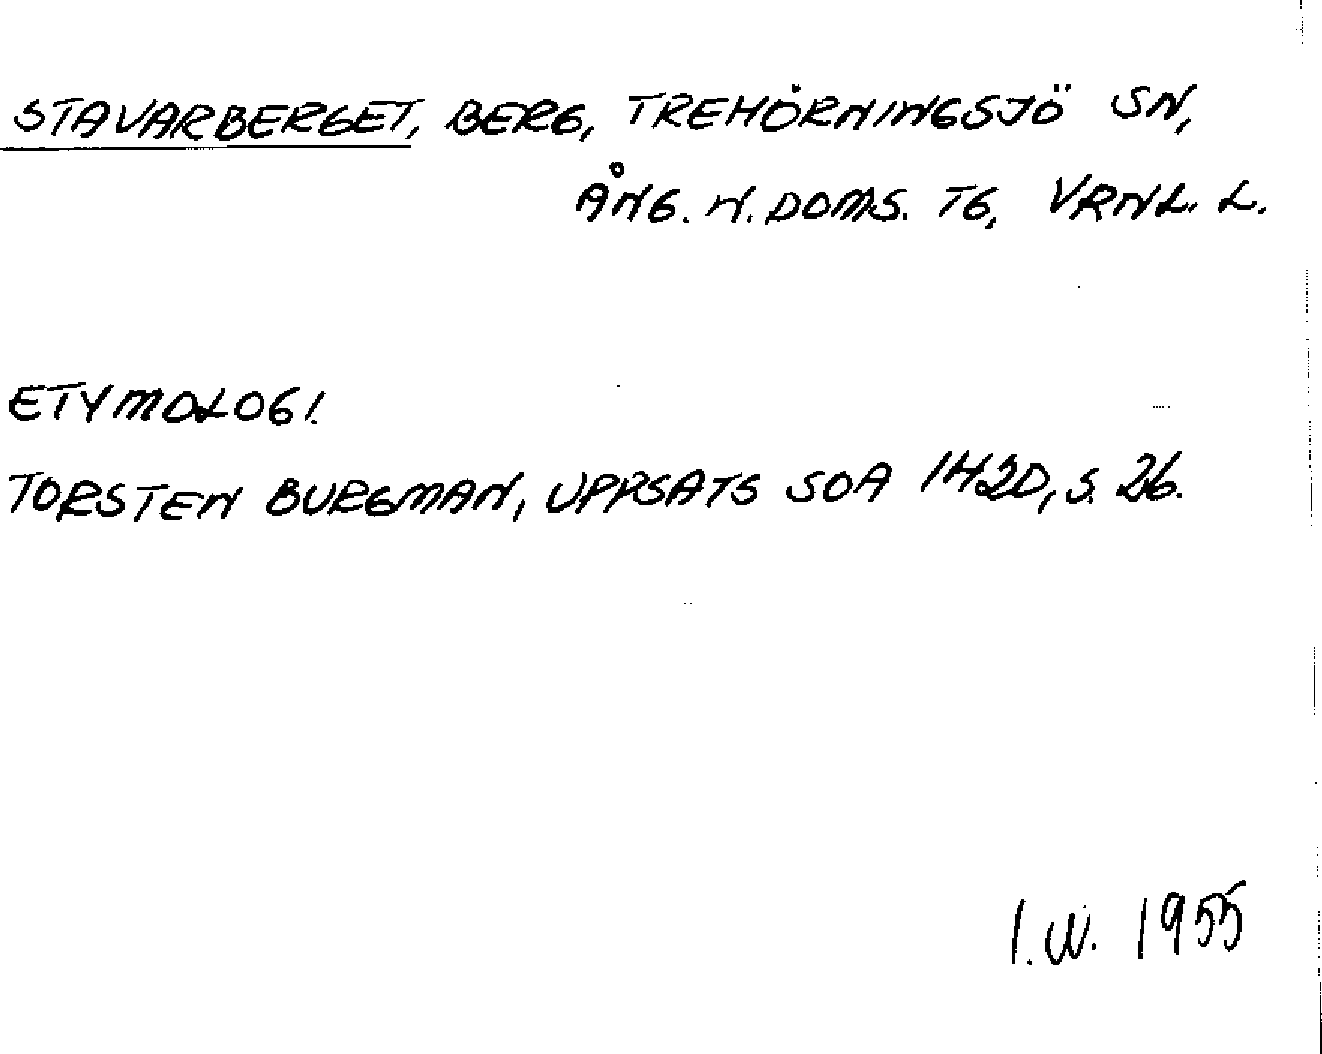 STAVARBERGET, BERG, TREHÖRNINGSJÖ SN,
ÅNG. N. DOMS. TG, VRNL. L.
ETYMOLOGI.
TORSTEN BURGMAN, UPPSATS SOA 1420, S. 26.
I.W. 1955